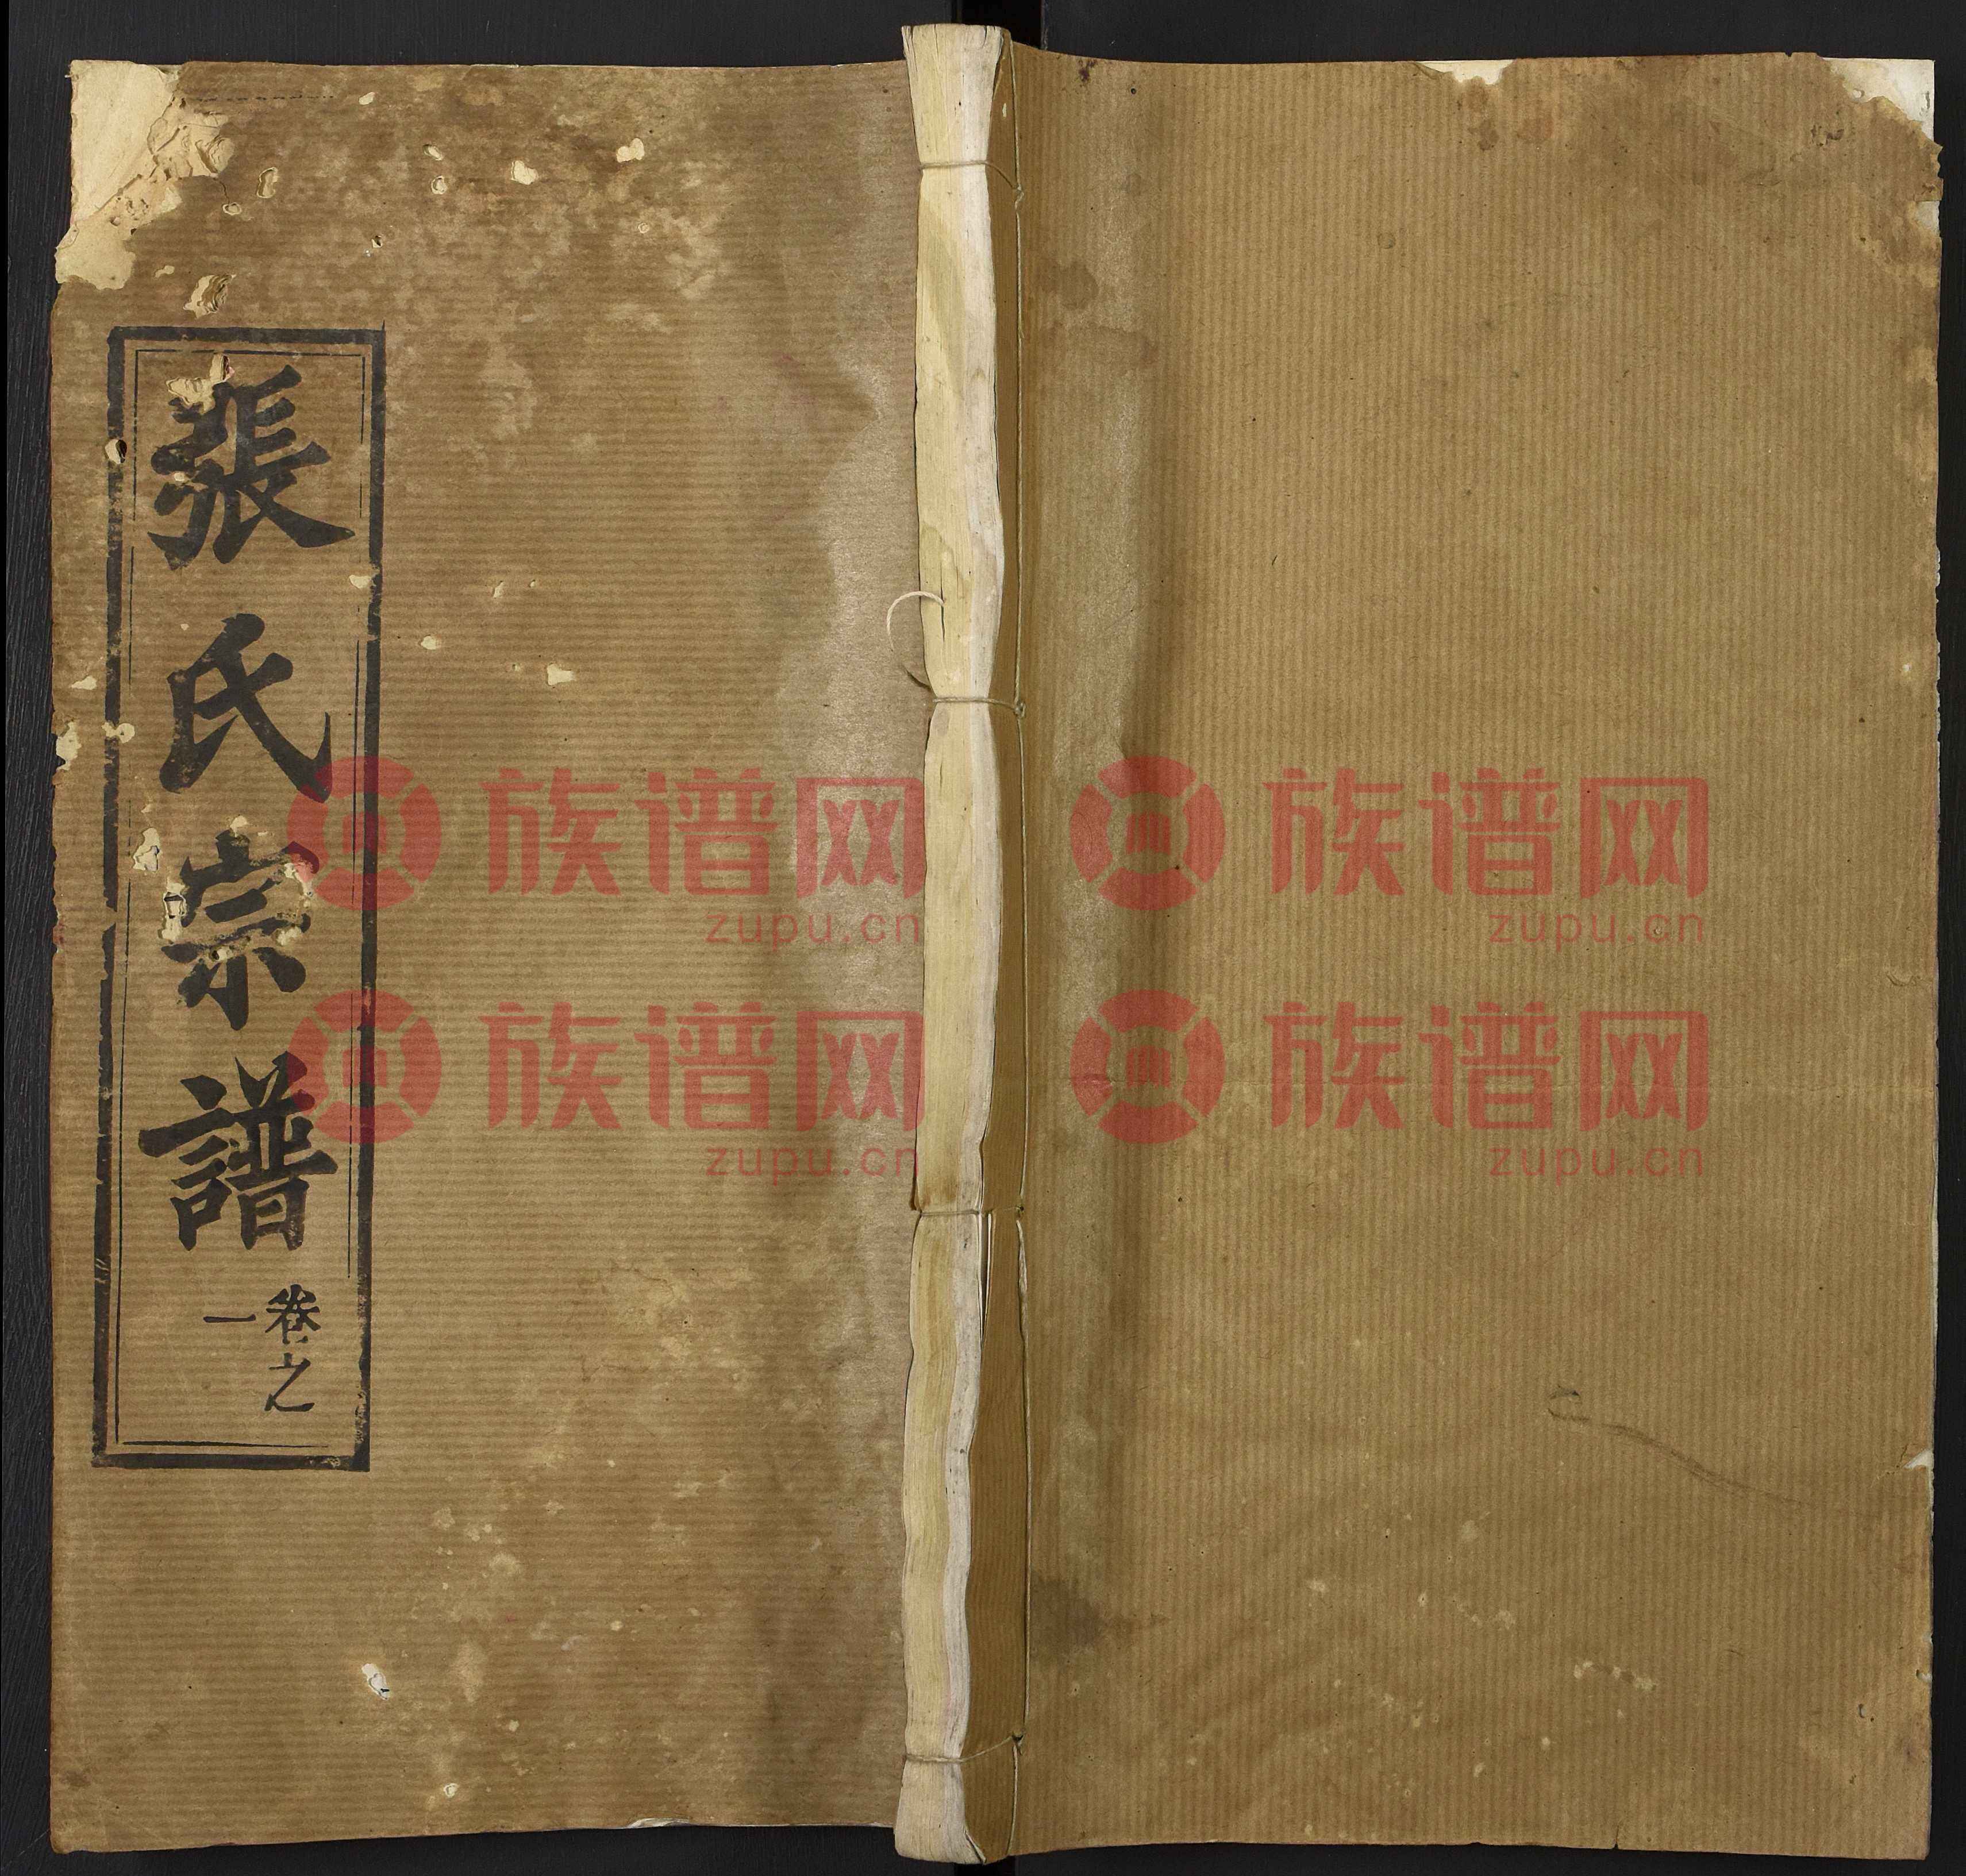 張氏宗譜
卷之
一
族谱网
zupu.cn
族谱网
zupu.cn
族谱网
zupu.cn
族谱网
zupu.cn